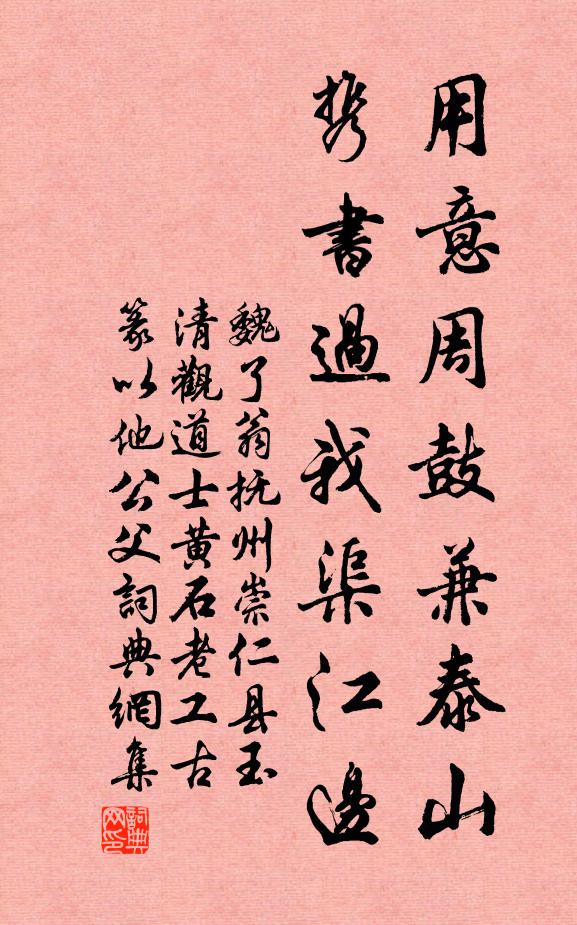 用意周鼓兼泰山
携書過我渠江邊
魏了翁抚州崇仁县玉
清觀道士黄石老工古
篆以他公父詞典網集
詞典网印